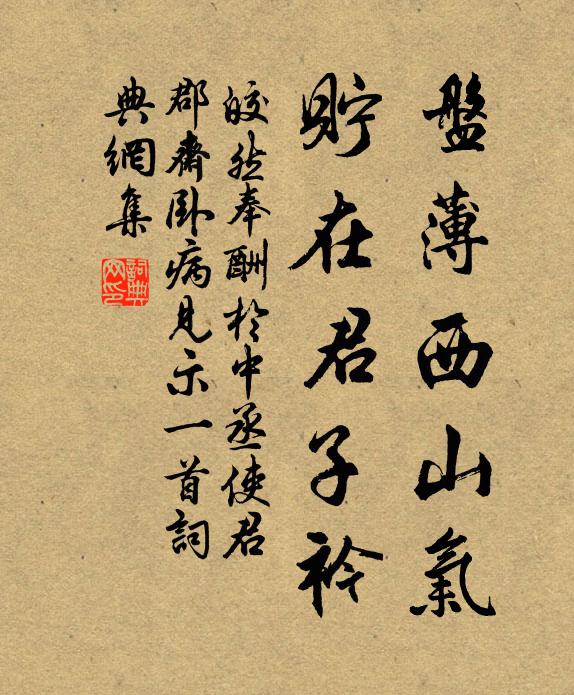 盤薄西山氣
貯在君子衿
皎然奉酬於中丞使君
郡齋卧病見示一首詞
典網集
詞典
网印